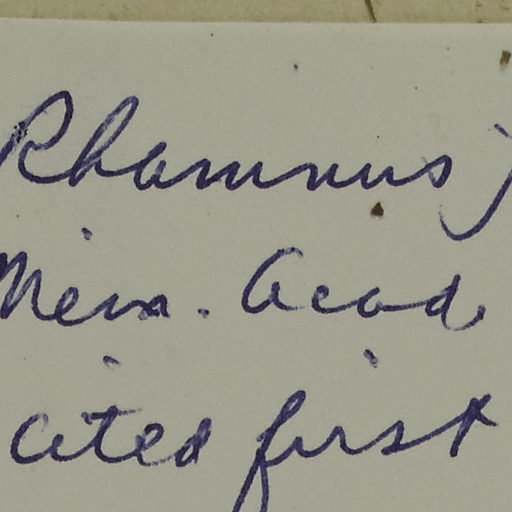 Rhamnus j
Mem. Acad
cited first